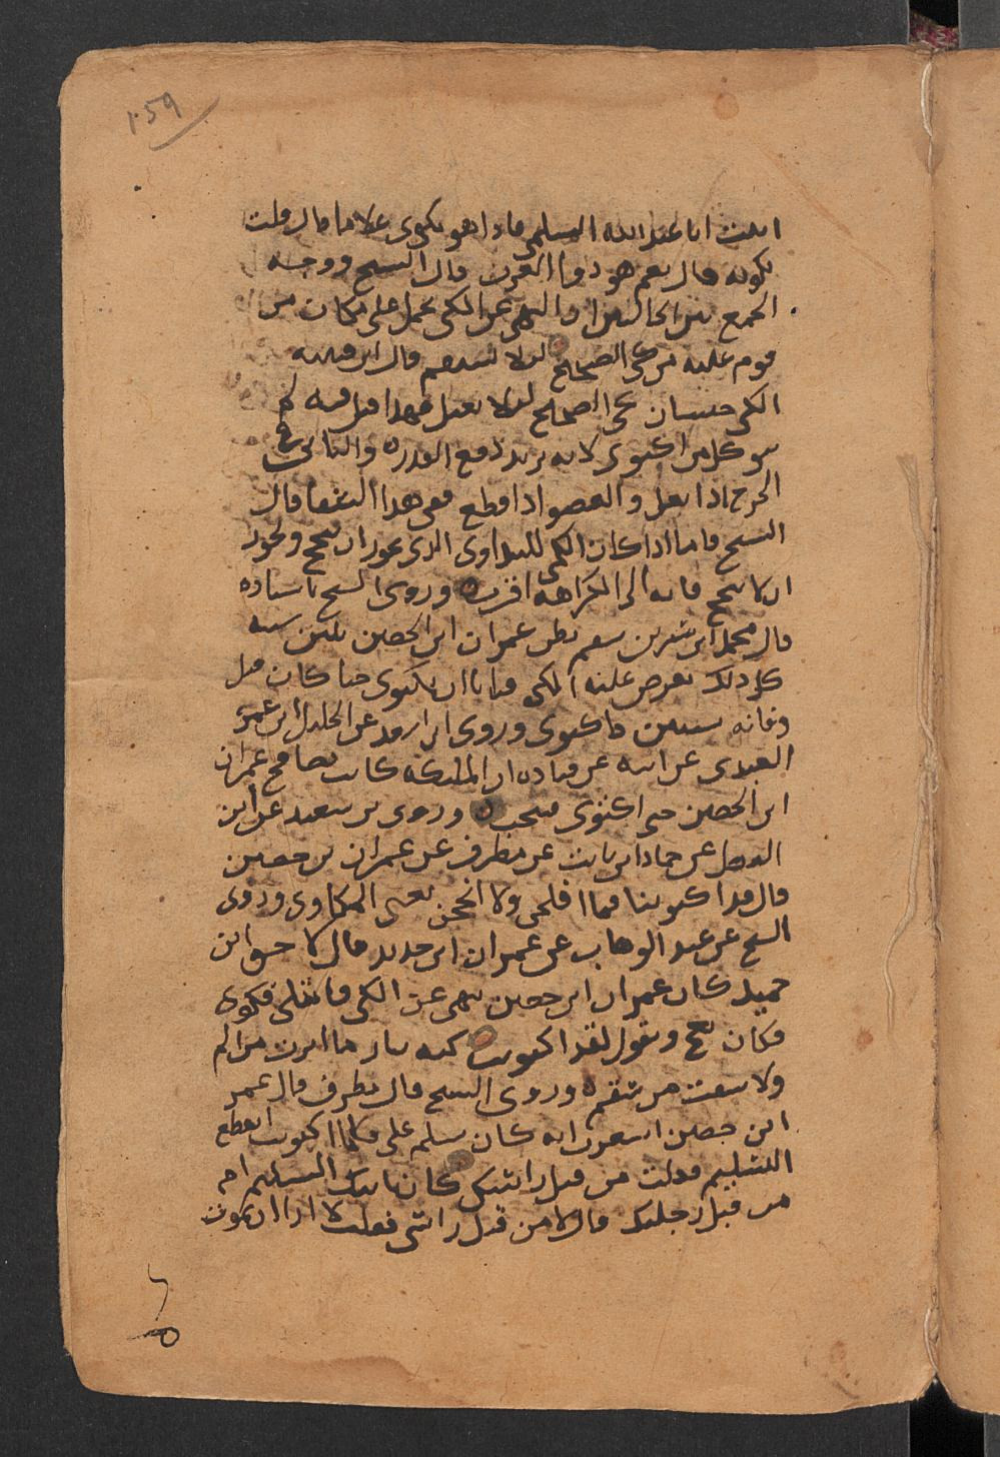 ١٠٥٩
ابا عبد الله المسلمى فاذا هو يكوى غلاما قال قلت
تكويه قال نعم هو دوا العرب قال الشيخ ووجه
الجمع بين الحالين ان النهى عن الكى يحمل على مكان من
يكوى الصحيح ليلا يسقم قال ابن قتيبه
الكى جنسان كى الصحيح ليلا يعتل فهذا قيل فيه لم
يتوكل من اكتوى لانه يريد دفع القدر والثانى كى
الجرح اذا نغل والعضو اذا قطع ففى هذا الشفا قال
الشيخ فاما اذا كان الكى للتداوى الذى يجوز ان ينجح ويجوز
ان لا ينجح فانه الى الكراهه اقرب وروى الشيخ باسناده
قال محمد ابن سيرين سقم بطن عمران ابن الحصين ثلثين سنه
كل ذلك يعرض عليه الكى فيابا ان يكتوى حتا كان قبل
وفاته بسنتين فاكتوى وروى ابن ارومه عن الخليل ابن عمر
العبدى عن ابيه عن قتاده ان الملىكه كانت تصافح عمران
ابن الحصين حتى اكتوى فتنحت وروى بن سعيد عن ابن
الفضل عن حماد ابن ثابت عن مطرف عن عمران بن حصين
قال قد اكتوينا فما افلحن ولا انجحن يعنى المكاوى وروى
الشيخ عن عبد الوهاب عن عمران ابن حدير قال لاحق ابن
حميد كان عمران ابن حصين ينهى عن الكى فابتلى فكوى
فكان يعج ويقول لقد اكتويت كيه بنار ما ابرت من الم
ولا شفت من سقم وروى الشيخ قال مطرف قال عمر
ابن حصين اشعرت انه كان يسلم على فلما اكتويت انقطع
التسليم فقلت من قبل راسك كان ياتيك التسليم ام
من قبل رجليك قال لا من قبل راسى فقلت لا ارا ان يموت